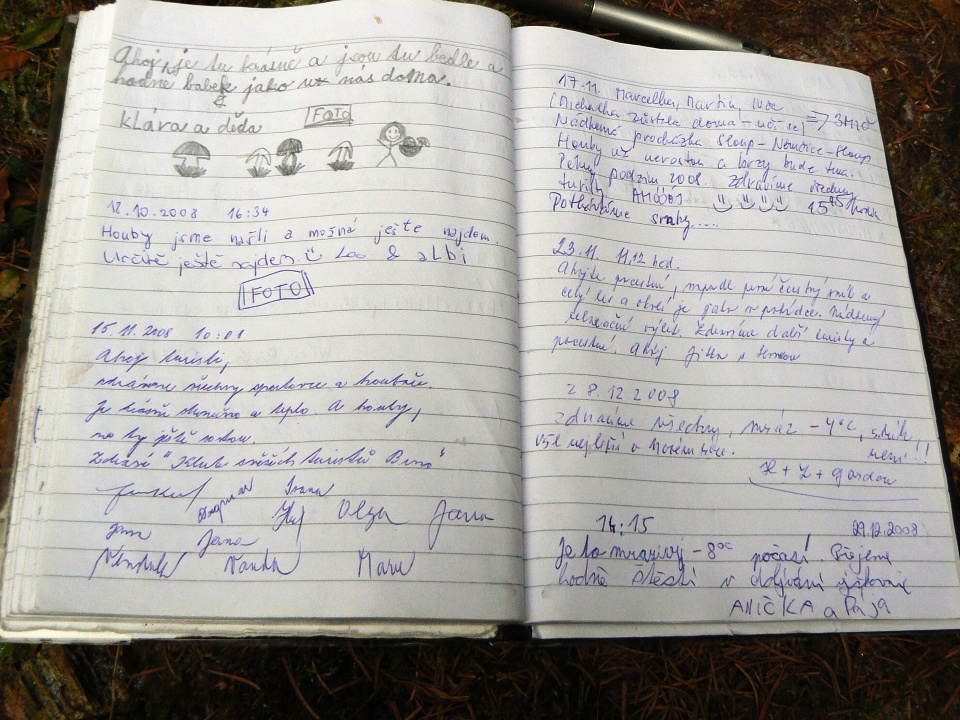 Ahoj, je tu krásně a jsou tu bedle a
hodně babek jako u nás doma.
Klára a děda
FOTO
18.10.2008 16:34
Houby jsme našli a možná ještě najdem.
Určitě ještě najdem. Loo & albi
FOTO
15.11.2008 10:01
Ahoj turisti,
zdravíme všechny sportovce a houbaře.
Je krásně slunečno a teplo. A houby,
no ty ještě rostou.
Zdraví "Klub českých turistů Brno"
Dagmar Ivana
Jana Olga Jana
Vendulka Vanda Marie
17.11. Marcelka, Martin, Luce
(Michalka zůstala doma - učí se)
Nádherná procházka Sloup - Němčice - Sloup
Houby už nerostou a brzy bude tma.
Pěkný podzim 2008. Zdravíme všechny
turisty AHOOOJ
Potkáváme srnky....
23.11. 11,12 hod.
Ahojte pocestní, napadl první čerstvý sníh a
celý les a okolí je jako v pohádce. Nádherný
relaxační výlet. Zdravíme další turisty a
pocestné. Ahoj Jitka a
28.12 2008
Zdravíme všechny, mráz -4°C, sníh
není!!
Vše nejlepší v Novém roce.
H + Z + Gordon
14:15 29.12.2008
Je to mrazivý -8°C počasí. Přejeme
hodně štěstí v
ANIČKA a Pája